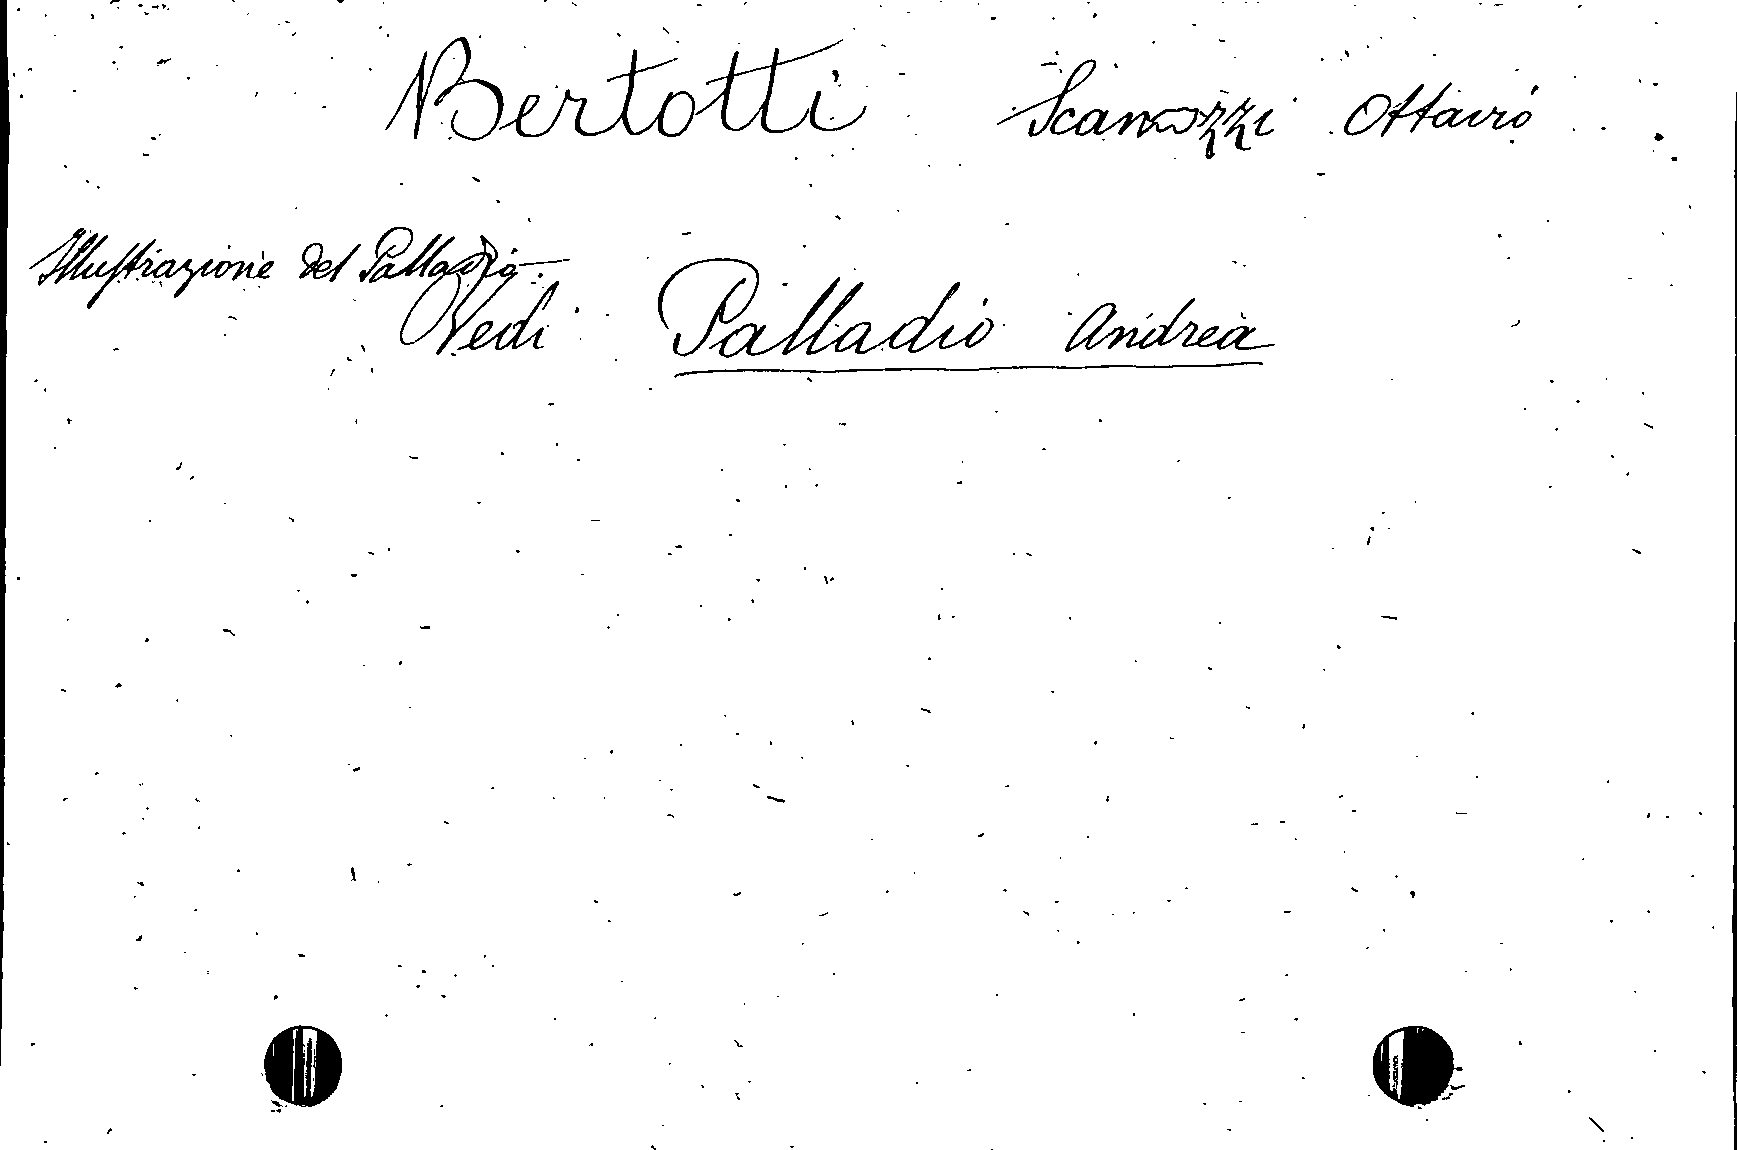 Bertotti Scamozzi Ottavio
Illustrazione del Palladio.
Vedi Palladio Andrea